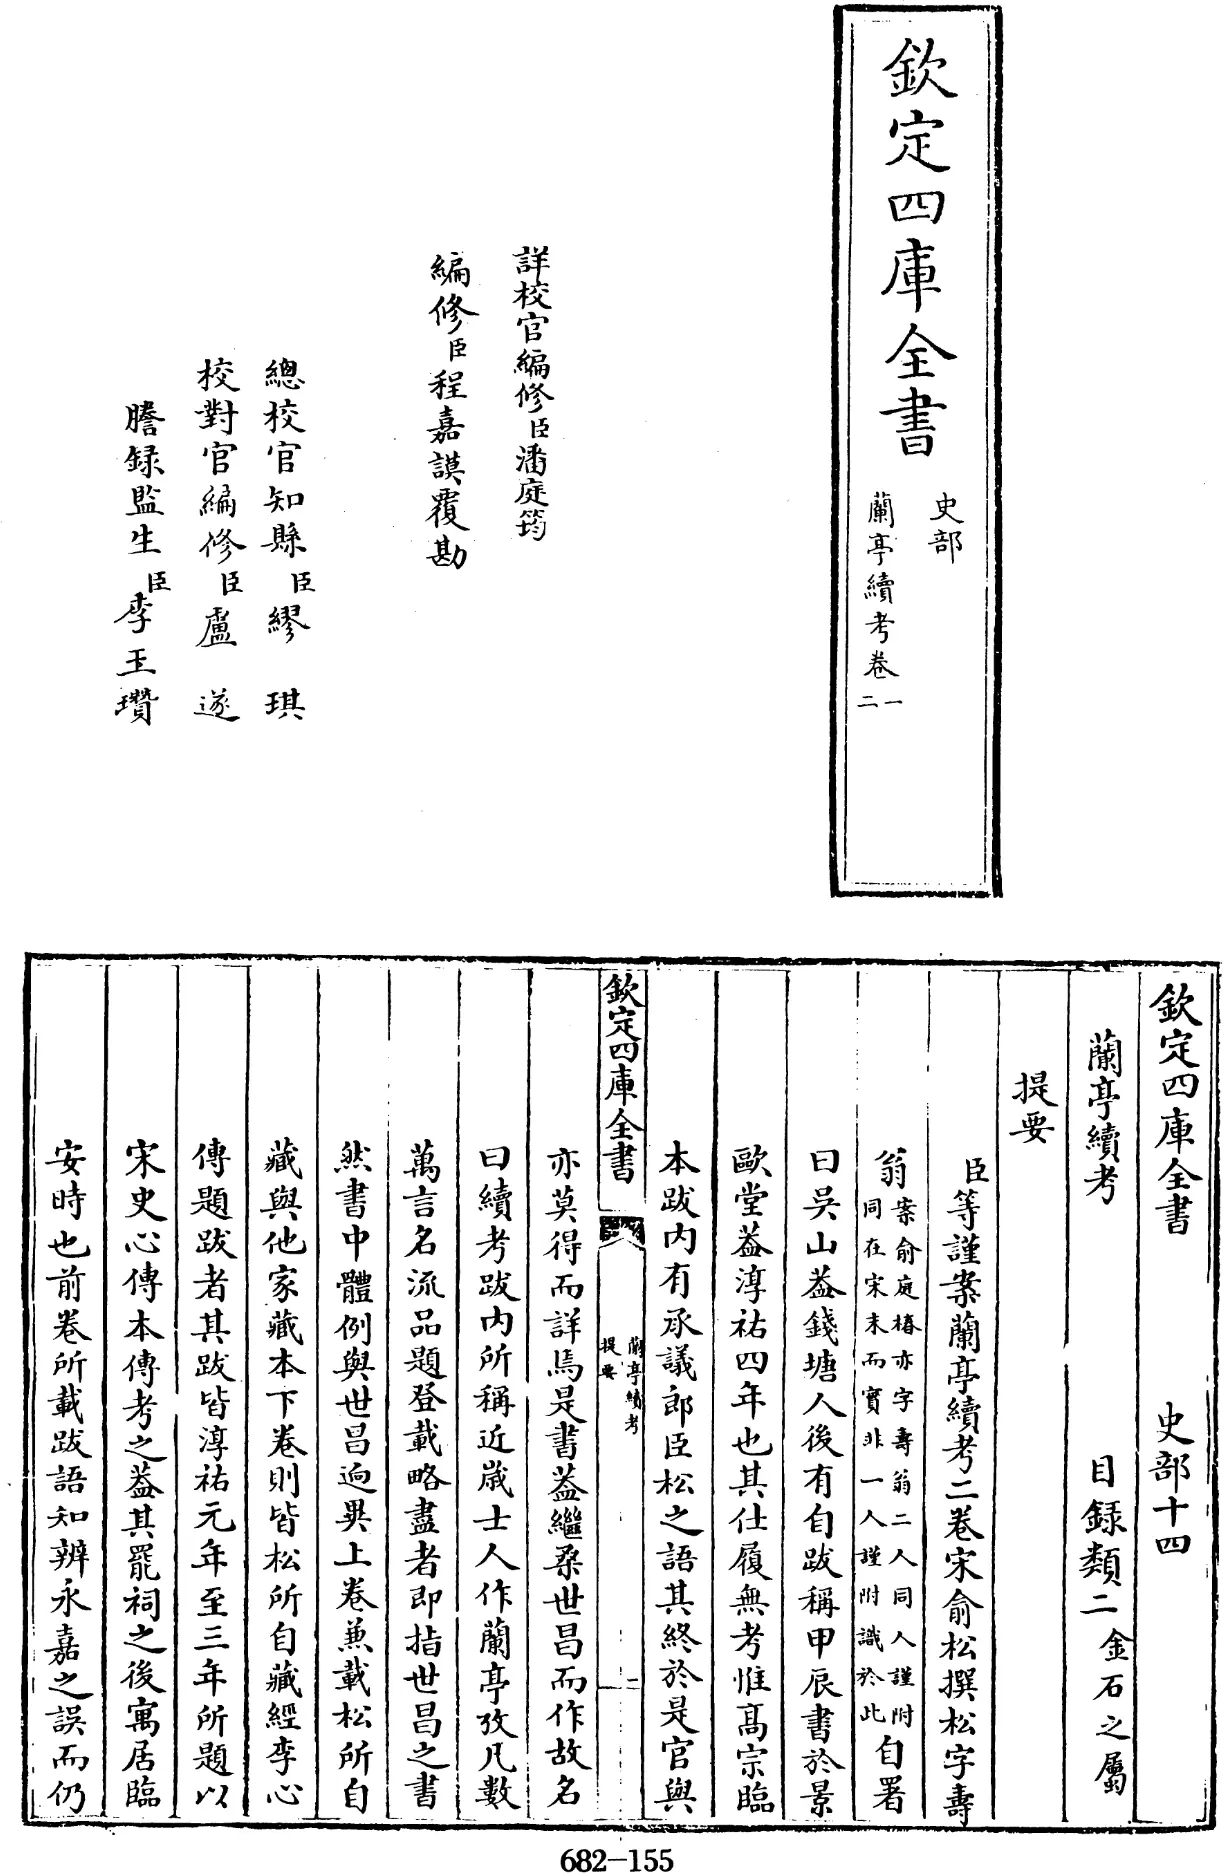 欽定四庫全書
史部
蘭亭續考卷一二
詳校官編修臣潘庭筠
編修臣程嘉謨覆勘
總校官知縣臣繆琪
校對官編修臣盧遂
謄録監生臣李玉瓚
欽定四庫全書 史部十四
蘭亭續考 目録類二金石之屬
提要
臣等謹案蘭亭續考二卷宋俞松撰松字壽
翁案俞庭椿亦字壽翁二人同人謹附同在宋末而實非一人謹附識於此自署
曰吳山葢錢塘人後有自跋稱甲辰書於景
歐堂葢淳祐四年也其仕履無考惟髙宗臨
本跋内有承議郎臣松之語其終於是官與
欽定四庫全書 蘭亭續考 提要 二
亦莫得而詳焉是書葢繼桑世昌而作故名
曰續考跋内所稱近嵗士人作蘭亭攷凡數
萬言名流品題登載略盡者即指世昌之書
然書中體例與世昌逈異上卷兼載松所自
藏與他家藏本下卷則皆松所自藏經李心
傳題跋者其跋皆淳祐元年至三年所題以
宋史心傳本傳考之葢其罷祠之後寓居臨
安時也前卷所載跋語知辨永嘉之誤而仍
682-155